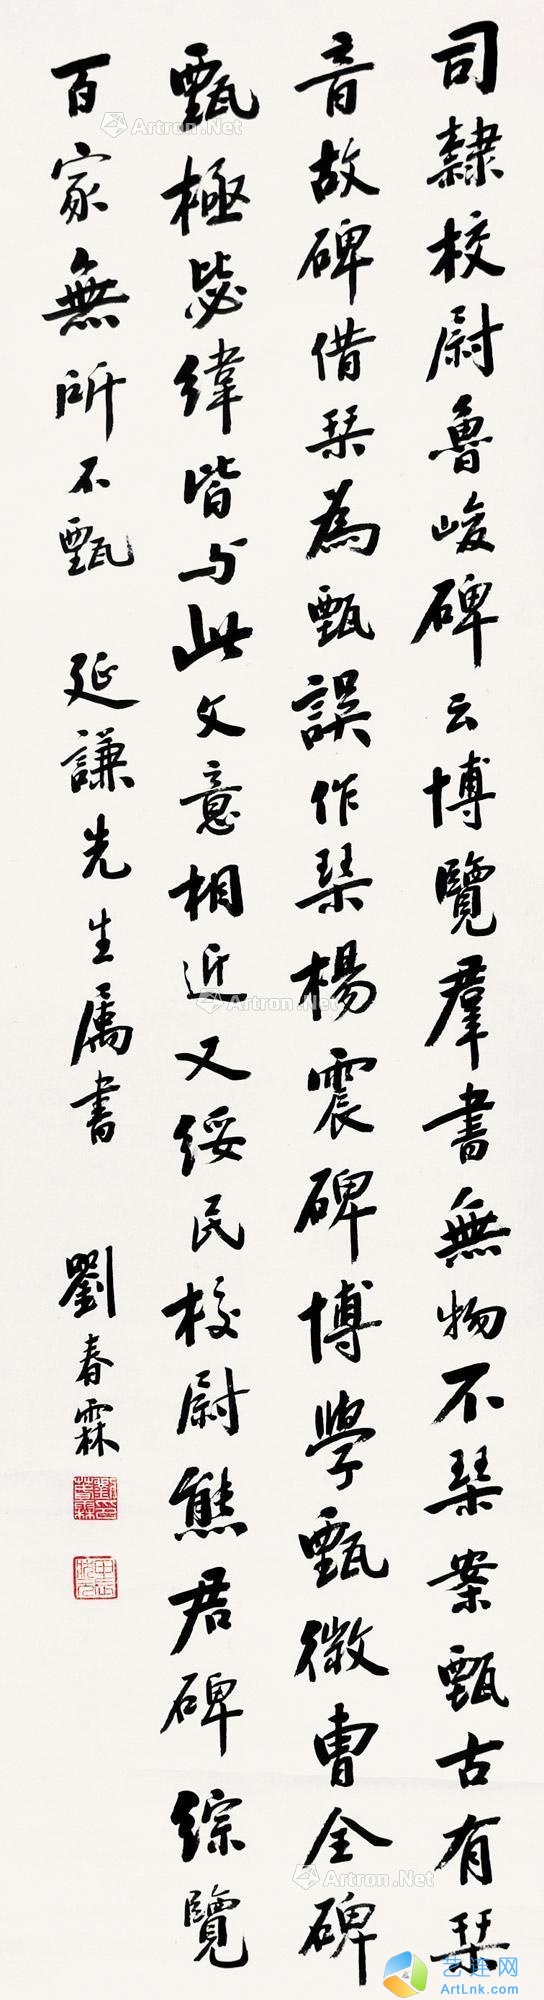 司隸校尉魯峻碑云博覽群書無物不栞案甄古有栞
音故碑借栞為甄誤作栞楊震碑博學甄微曹全碑
甄極毖緯皆与此文意相近又綏民校尉熊君碑綜覽
百家無所不甄
延謙先生属書
劉春霖
Artron.Net
Artron.Net
Artron.Net
Artron.Net
Artron.Net
Artron.Net
艺连网
ArtLnk.com